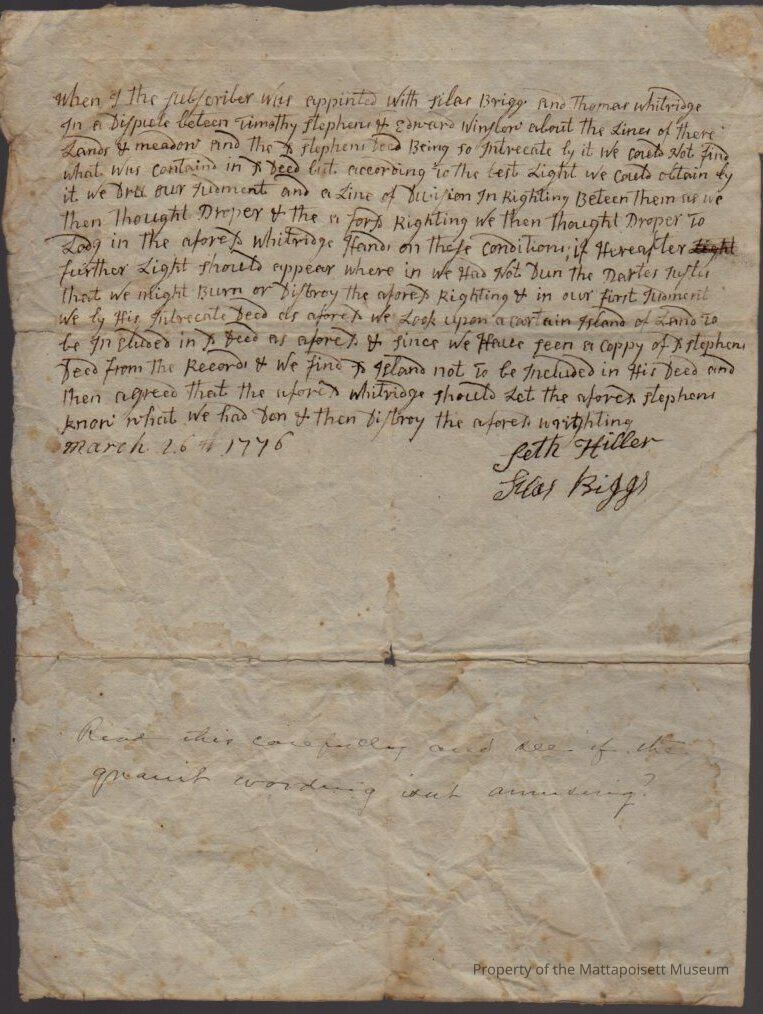 When I the subscriber was appinted with silas Brigg and Thomas whitridge
In a Dispute beteen Timothy stephens & Edward Winslow about the Lines of there
Lands & meadow and the sd stephens Deed Being so Intrecate by it we could Not find
what was containd in sd Deed but according to the best Light we could obtain by
it we Dru our Judment and a Line of Division In Righting Beteen them as we
then Thought Droper & the a fors Righting we then Thought Droper To
Lodg in the aforesd whitridge Hands on these conditions; if Hereafter Light
further Light should appear where in we Had Not Dun the Parties Justis
that we might Burn or Distroy the aforesd Righting & in our first Judment
we by His Intrecate Deed as aforesd we Look upon a cartain Island of Land To
be Included in sd Deed as aforesd & since we Have seen a coppy of sd stephens
Deed from the Records & we find sd Island not to be Included in His Deed and
then agreed that the aforesd whitridge should Let the aforesd stephens
know what we had Don & then Distroy the aforesd wrighting
march 26th 1776
Seth Hiller
Silas Briggs
Read this carefully and see if the
quaint wording isnt amusing?
Property of the Mattapoisett Museum